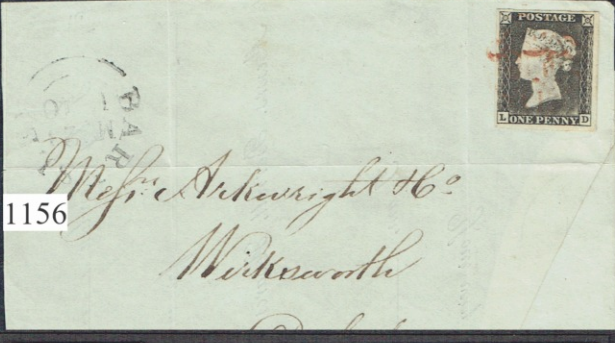 POSTAGE
L ONE PENNY D
DAR
Messrs Arkwright & Co
1156
Wirksworth